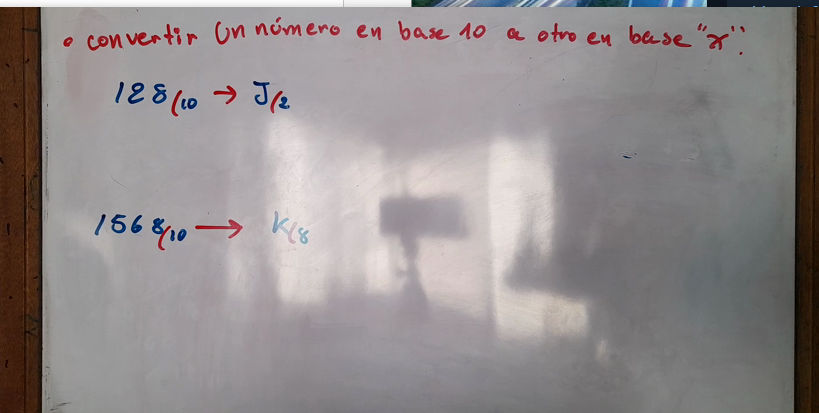 • convertir Un número en base 10 a otro en base "x".
128/10 → J/2
1568/10 → K/8